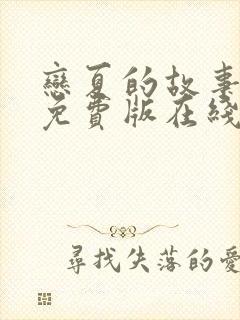 戀夏的故事
免費版在綫
尋找失落的愛